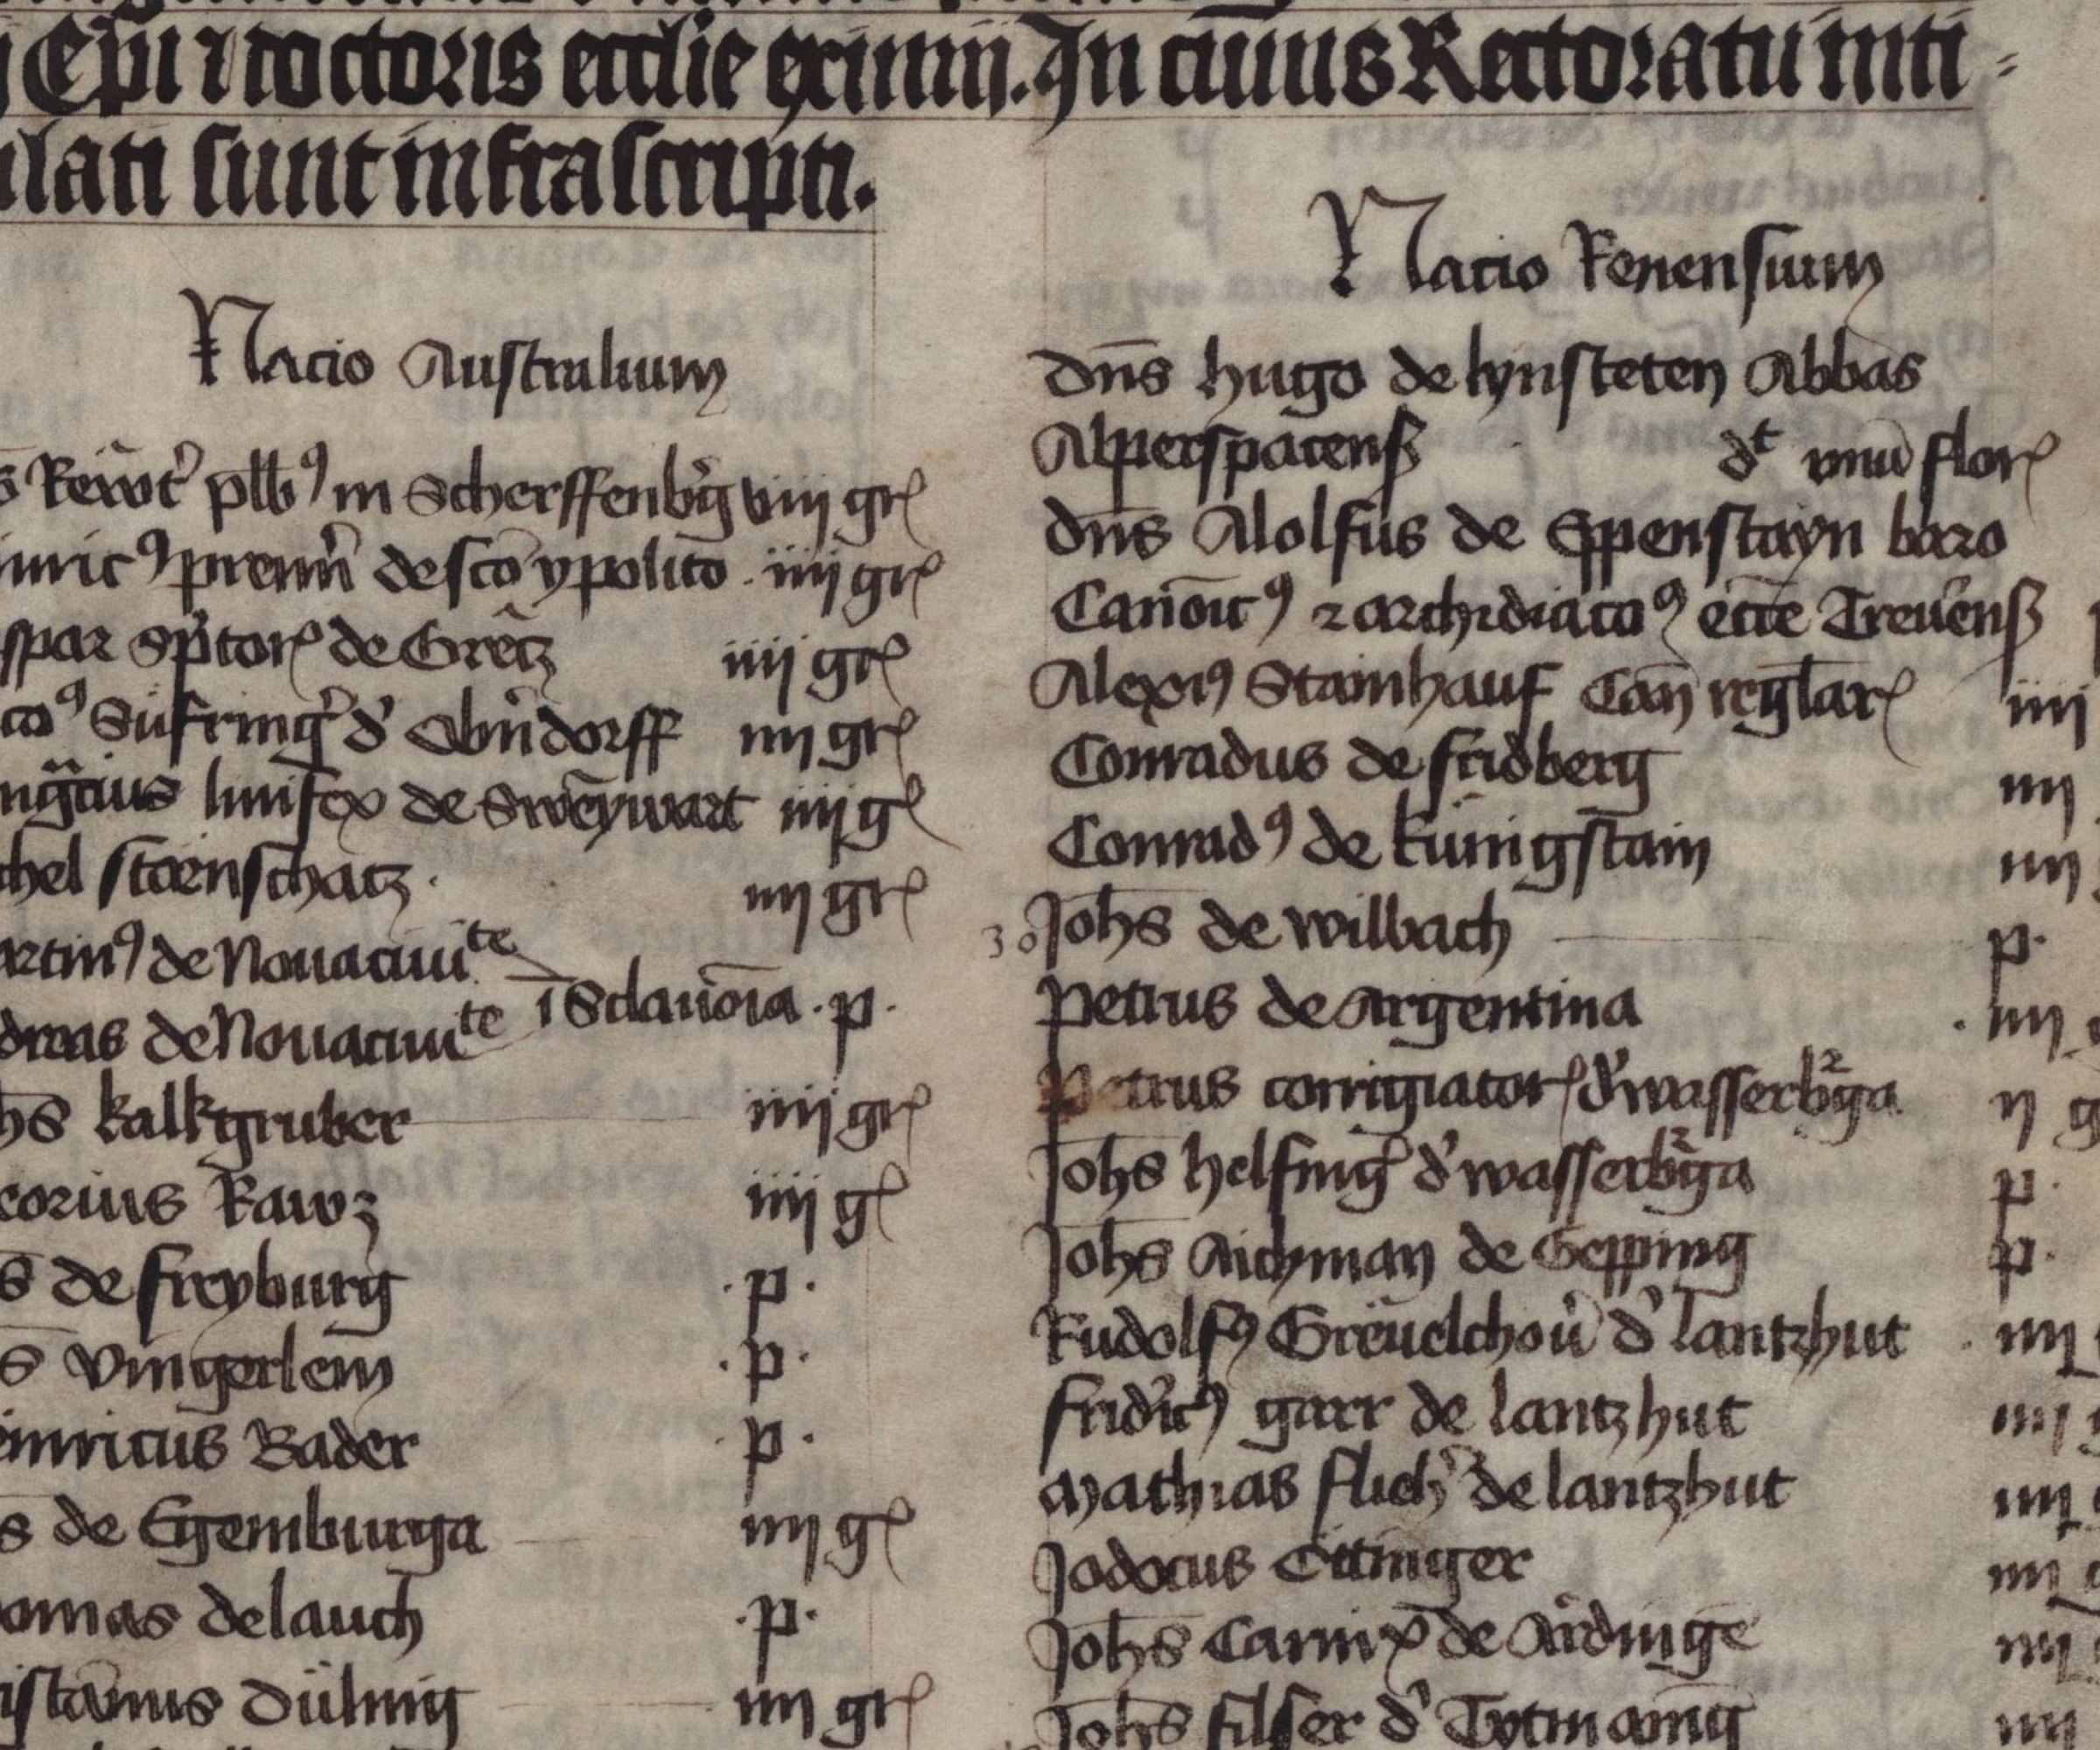 Ep̄i ⁊ doctoris ecclīe eximii. In cuiūs Rectoratu inti⸗
ulati sunt infrascripti.
Nacio Australium
Rew̄t' plb̄ꝰ in Scherffenb'g viij gr̄
de sc̄o ypolito . iiij gr̄
spar de Gretz iiij gr̄
Sufring' d' Obn'dorff iiij gr̄
linifex de Sweywart iiij ḡ
chel starnschatz . iiij gr̄
artinꝰ de Nouaciuiᵗᵉ
dreas de Nouaciuiᵗᵉ ī Sclauōia . p .
hs̄ kalkgruber iiij gr̄
corius Rawz iiij ḡ
s̄ de freyburg . p .
s̄ Vingerlein . p .
einricus Bader . p .
s de Egemburga iiij ḡ
omas de lauch . p .
istannus Dülnig iiij gr̄
Nacio Renensium
Dn̄s hugo de lynsteten Abbas
Alperspacensꝭ dᵗ vnū flor̄
Dn̄s Alolfus de Eppenstayn baro
Canōicꝰ ⁊ archidiacoꝰ ecc̄e Treuēnsꝭ
Alexiꝰ Stainhauf Can̄ reḡlar̄ iiij
Conradus de fridberg iiij
Conradꝰ de künigstain iiij
30 Joh̄s de wilbach p.
Petrus de Argentina . iiij
Petrus corrigiator̄ d' wasserb'ga ij g
Joh̄s helfing' d' wasserb'ga p .
Joh̄s Aichman de Gepping p .
Rudolfꝰ Greuelchou' d' lantzhut . iiij
frid'icꝰ garr de lantzhut iiij g
Mathias flieh' de lantzhut iiij
Jodocus Ottinger iiij g
Joh̄s Carnifꝭ de Ardinge iiij
Joh̄s filser d' Tytmaning iiij